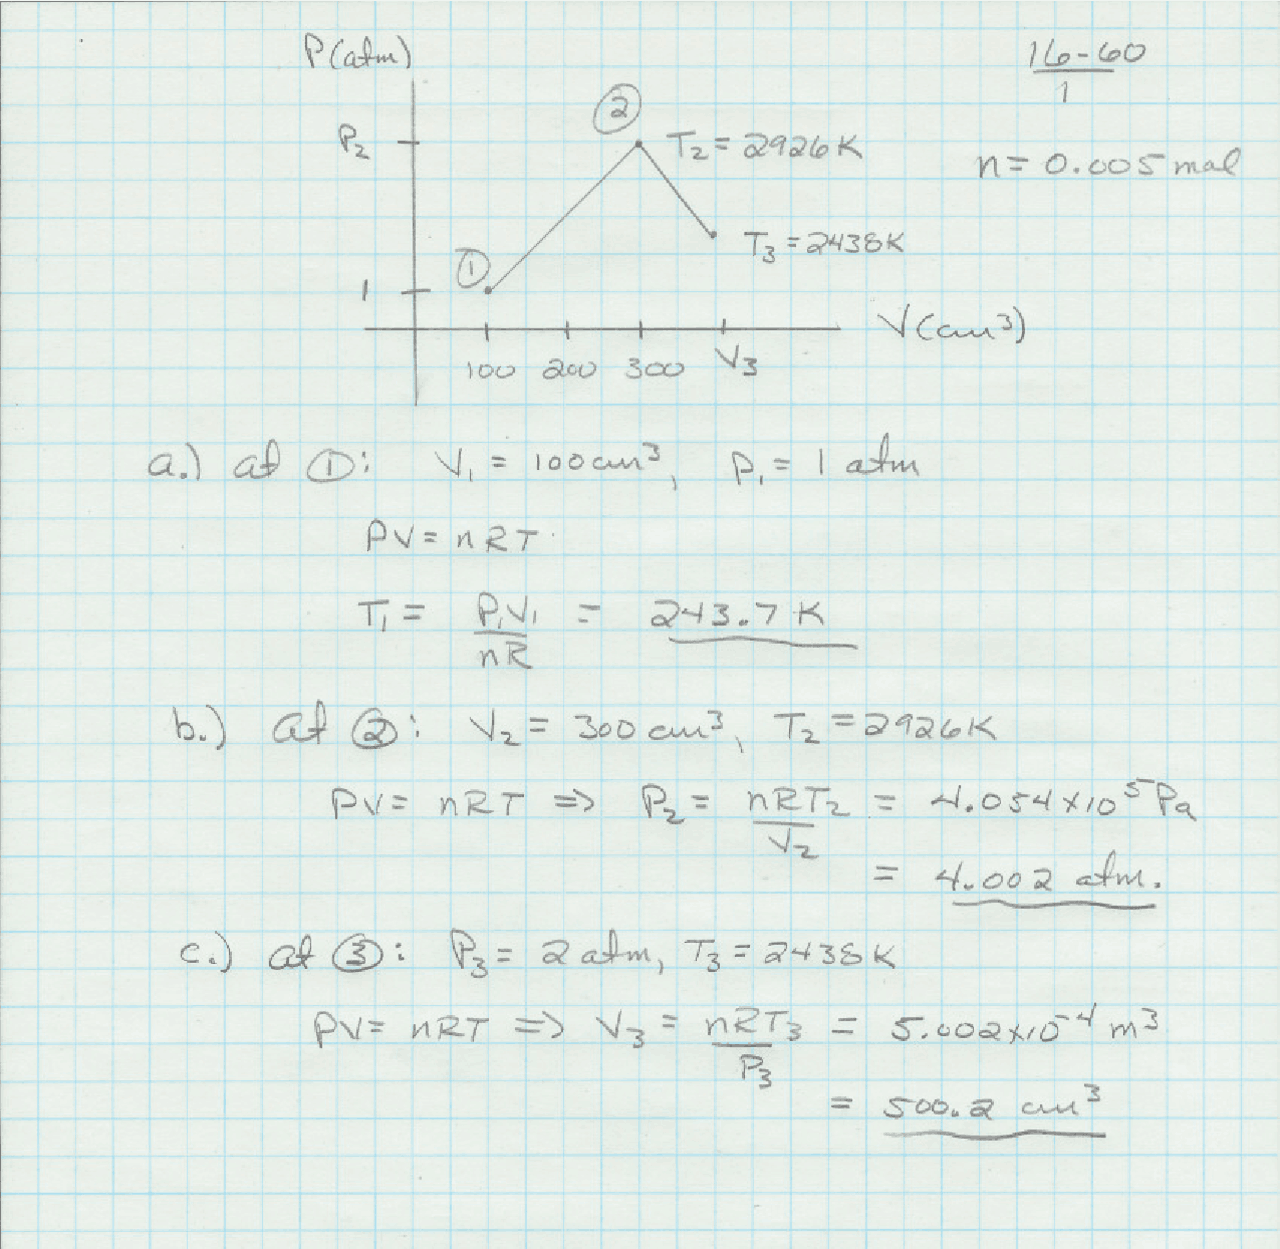 P(atm)
16-60
1
②
P₂
T₂ = 2926K
n = 0.005 mol
①
T₃ = 2438K
1
V(cm³)
100 200 300 V₃
a.) at ①: V₁ = 100cm³, P₁ = 1 atm
PV = nRT
T₁ = P₁V₁/nR = 243.7 K
b.) at ②: V₂ = 300 cm³, T₂ = 2926K
PV = nRT ⇒ P₂ = nRT₂/V₂ = 4.054 × 10⁵ Pa
= 4.002 atm.
c.) at ③: P₃ = 2 atm, T₃ = 2438K
PV = nRT ⇒ V₃ = nRT₃/P₃ = 5.002 × 10⁻⁴ m³
= 500.2 cm³